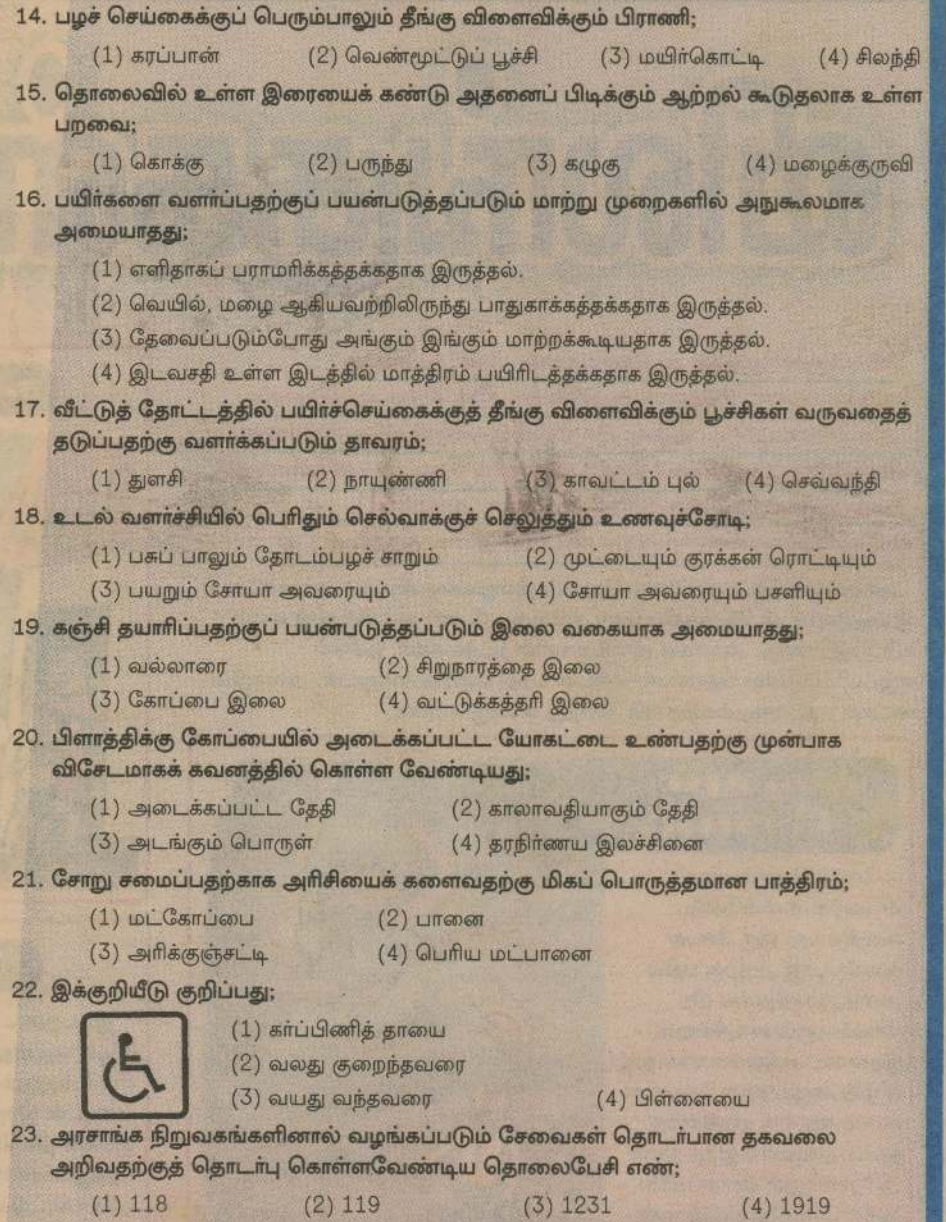 14. பழச் செய்கைக்குப் பெரும்பாலும் தீங்கு விளைவிக்கும் பிராணி;
(1) கரப்பான் (2) வெண்மூட்டுப் பூச்சி (3) மயிர்கொட்டி (4) சிலந்தி
15. தொலைவில் உள்ள இரையைக் கண்டு அதனைப் பிடிக்கும் ஆற்றல் கூடுதலாக உள்ள
பறவை;
(1) கொக்கு (2) பருந்து (3) கழுகு (4) மழைக்குருவி
16. பயிர்களை வளர்ப்பதற்குப் பயன்படுத்தப்படும் மாற்று முறைகளில் அநுகூலமாக
அமையாதது;
(1) எளிதாகப் பராமரிக்கத்தக்கதாக இருத்தல்.
(2) வெயில், மழை ஆகியவற்றிலிருந்து பாதுகாக்கத்தக்கதாக இருத்தல்.
(3) தேவைப்படும்போது அங்கும் இங்கும் மாற்றக்கூடியதாக இருத்தல்.
(4) இடவசதி உள்ள இடத்தில் மாத்திரம் பயிரிடத்தக்கதாக இருத்தல்.
17. வீட்டுத் தோட்டத்தில் பயிர்ச்செய்கைக்குத் தீங்கு விளைவிக்கும் பூச்சிகள் வருவதைத்
தடுப்பதற்கு வளர்க்கப்படும் தாவரம்;
(1) துளசி (2) நாயுண்ணி (3) காவட்டம் புல் (4) செவ்வந்தி
18. உடல் வளர்ச்சியில் பெரிதும் செல்வாக்குச் செலுத்தும் உணவுச்சோடி;
(1) பசுப் பாலும் தோடம்பழச் சாறும் (2) முட்டையும் குரக்கன் ரொட்டியும்
(3) பயறும் சோயா அவரையும் (4) சோயா அவரையும் பசளியும்
19. கஞ்சி தயாரிப்பதற்குப் பயன்படுத்தப்படும் இலை வகையாக அமையாதது;
(1) வல்லாரை (2) சிறுநாரத்தை இலை
(3) கோப்பை இலை (4) வட்டுக்கத்தரி இலை
20. பிளாத்திக்கு கோப்பையில் அடைக்கப்பட்ட யோகட்டை உண்பதற்கு முன்பாக
விசேடமாகக் கவனத்தில் கொள்ள வேண்டியது;
(1) அடைக்கப்பட்ட தேதி (2) காலாவதியாகும் தேதி
(3) அடங்கும் பொருள் (4) தரநிர்ணய இலச்சினை
21. சோறு சமைப்பதற்காக அரிசியைக் களைவதற்கு மிகப் பொருத்தமான பாத்திரம்;
(1) மட்கோப்பை (2) பானை
(3) அரிக்குஞ்சட்டி (4) பெரிய மட்பானை
22. இக்குறியீடு குறிப்பது;
(1) கர்ப்பிணித் தாயை
(2) வலது குறைந்தவரை
(3) வயது வந்தவரை (4) பிள்ளையை
23. அரசாங்க நிறுவகங்களினால் வழங்கப்படும் சேவைகள் தொடர்பான தகவலை
அறிவதற்குத் தொடர்பு கொள்ளவேண்டிய தொலைபேசி எண்;
(1) 118 (2) 119 (3) 1231 (4) 1919